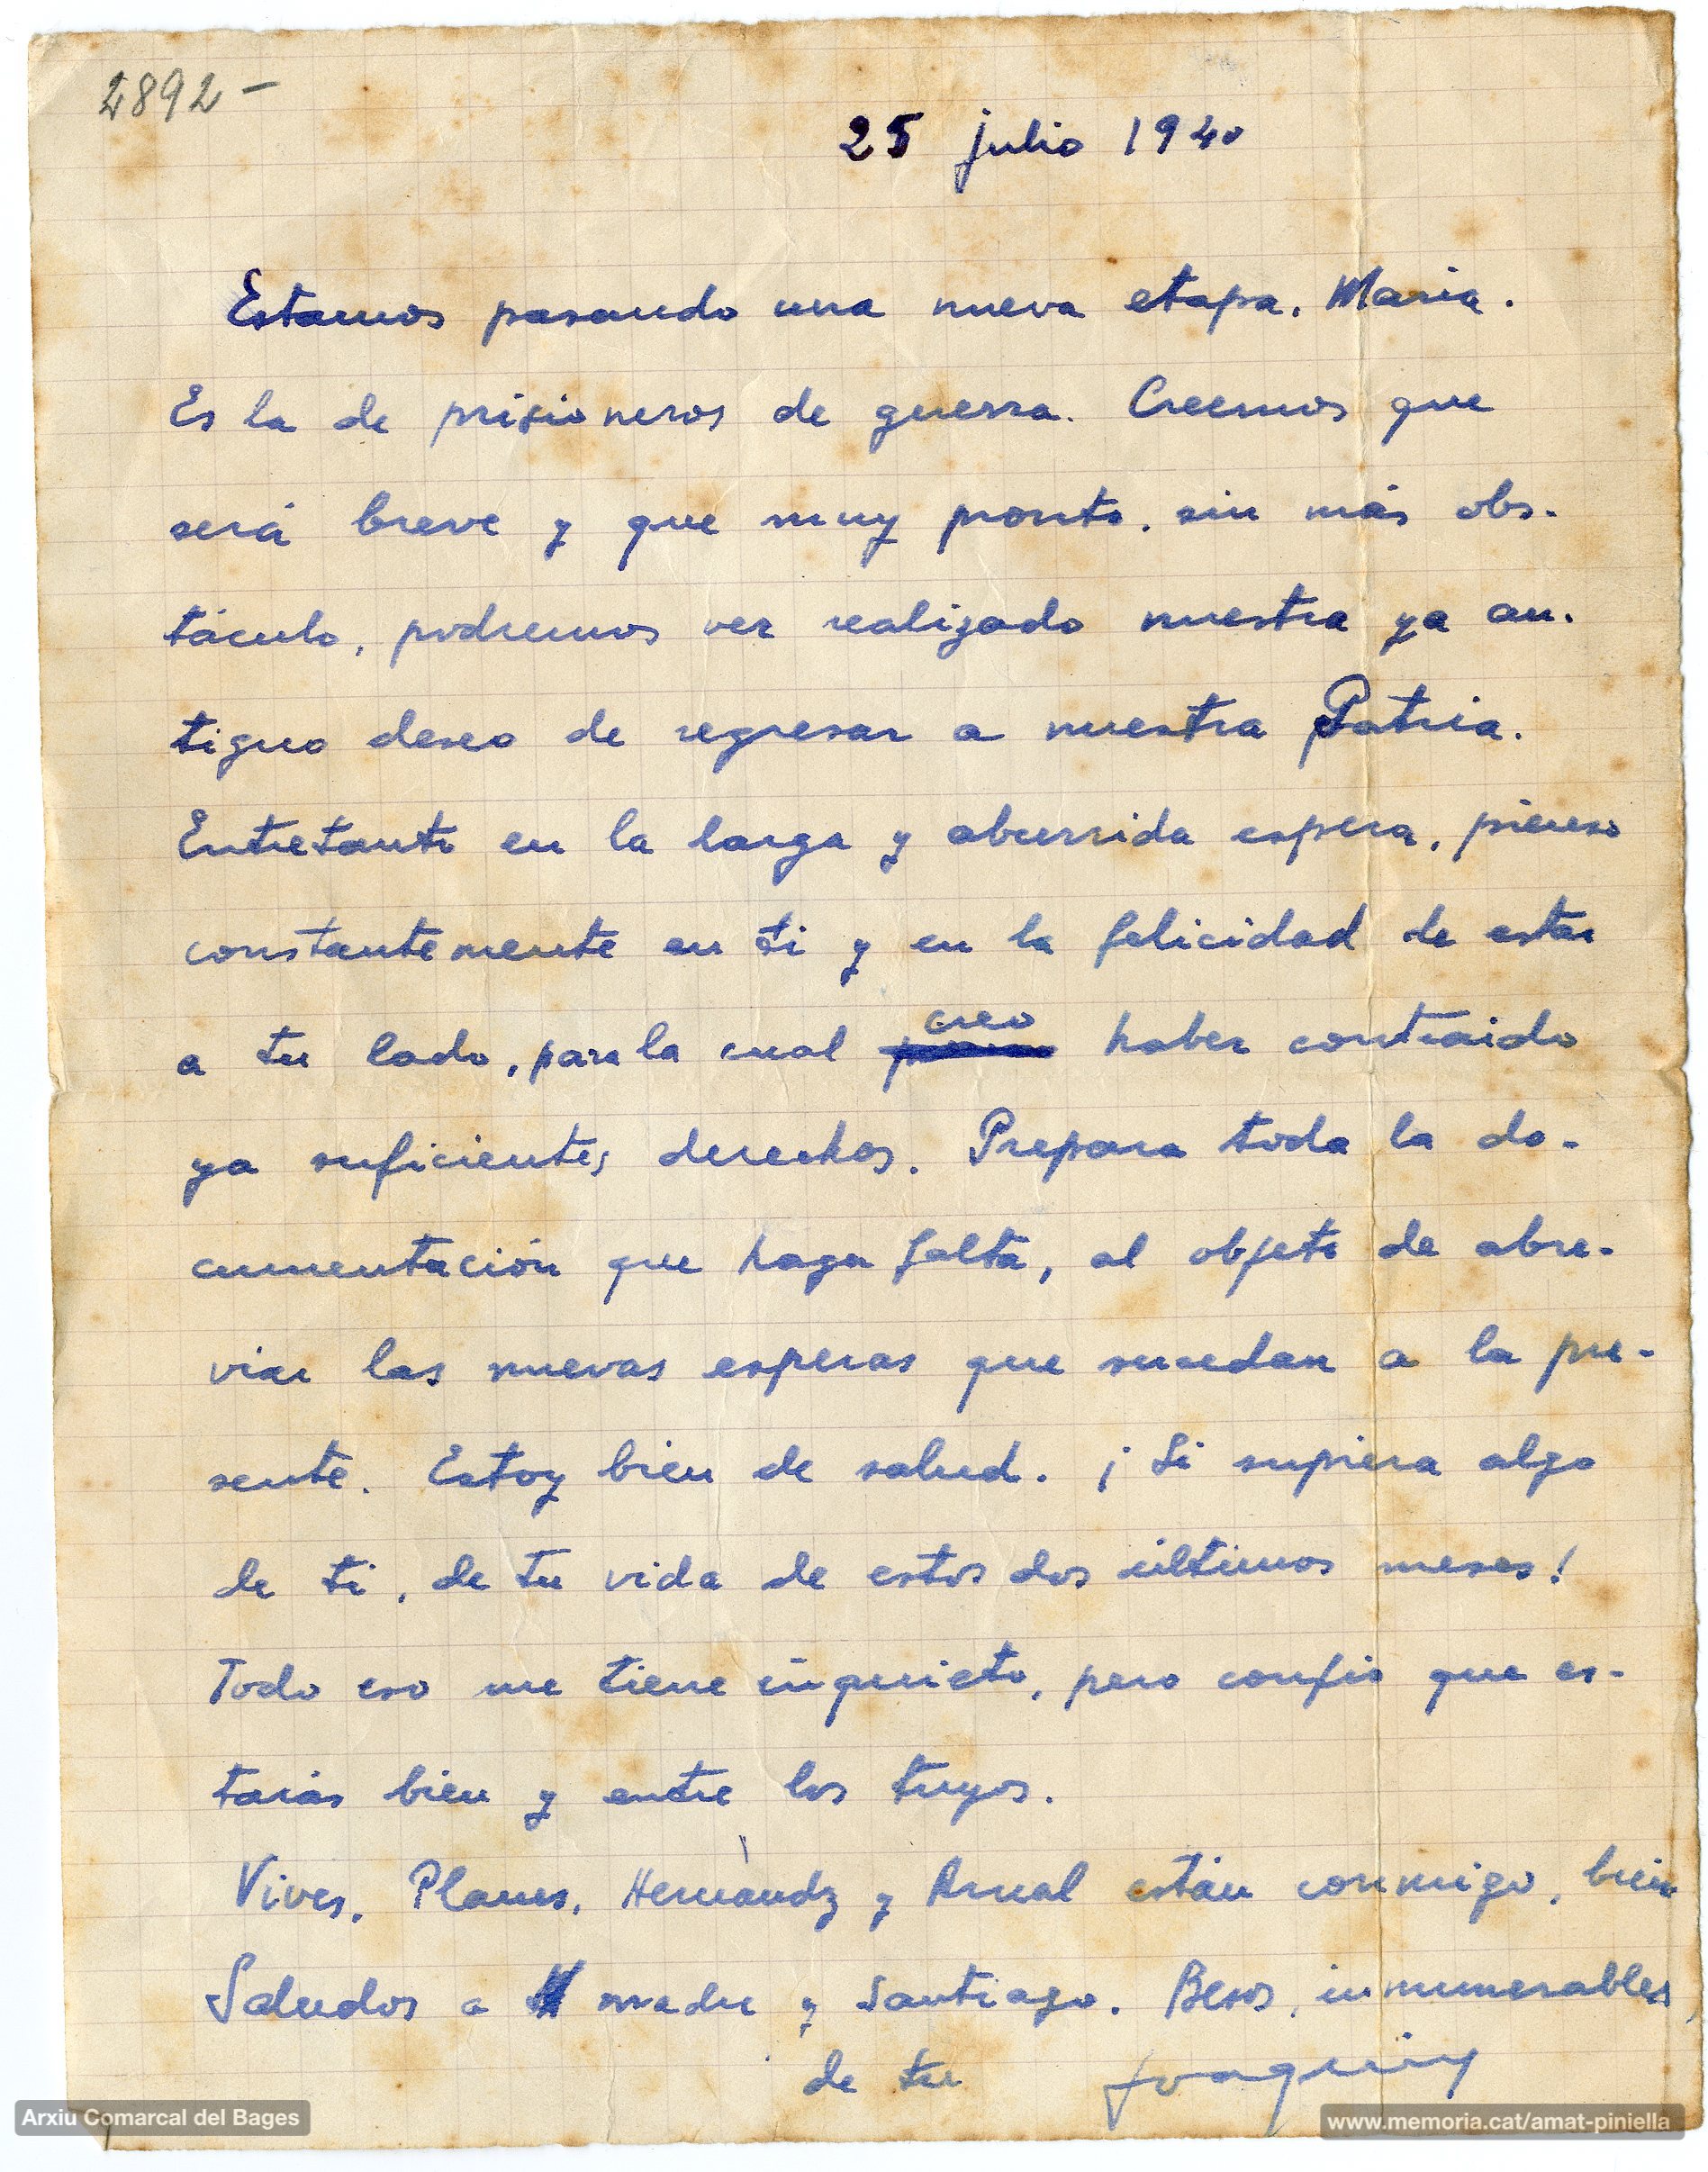 2892-
25 julio 1940
Estamos pasando una nueva etapa, Maria.
Es la de prisioneros de guerra. Creemos que
será breve y que muy pronto, sin más obs-
táculo, podremos ver realizado nuestra ya an-
tiguo deseo de regresar a nuestra Patria.
Entretanto en la larga y aburrida espera, pienso
constantemente en ti y en la felicidad de estar
creo
a tu lado, para la cual haber contraido
ya suficientes derechos. Prepara toda la do-
cumentación que haga falta, al objeto de abre-
viar las nuevas esperas que sucedan a la pre-
sente. Estoy bien de salud. ¡Si supiera algo
de ti, de tu vida de estos dos últimos meses!
Todo eso me tiene inquieto, pero confio que es-
tarás bien y entre los tuyos.
Vives, Planas, Hernández y Arnal están conmigo, bien
Saludos a madre y Santiago. Besos, innumerables,
de tu Joaquim
Arxiu Comarcal del Bages
www.memoria.cat/amat-piniella